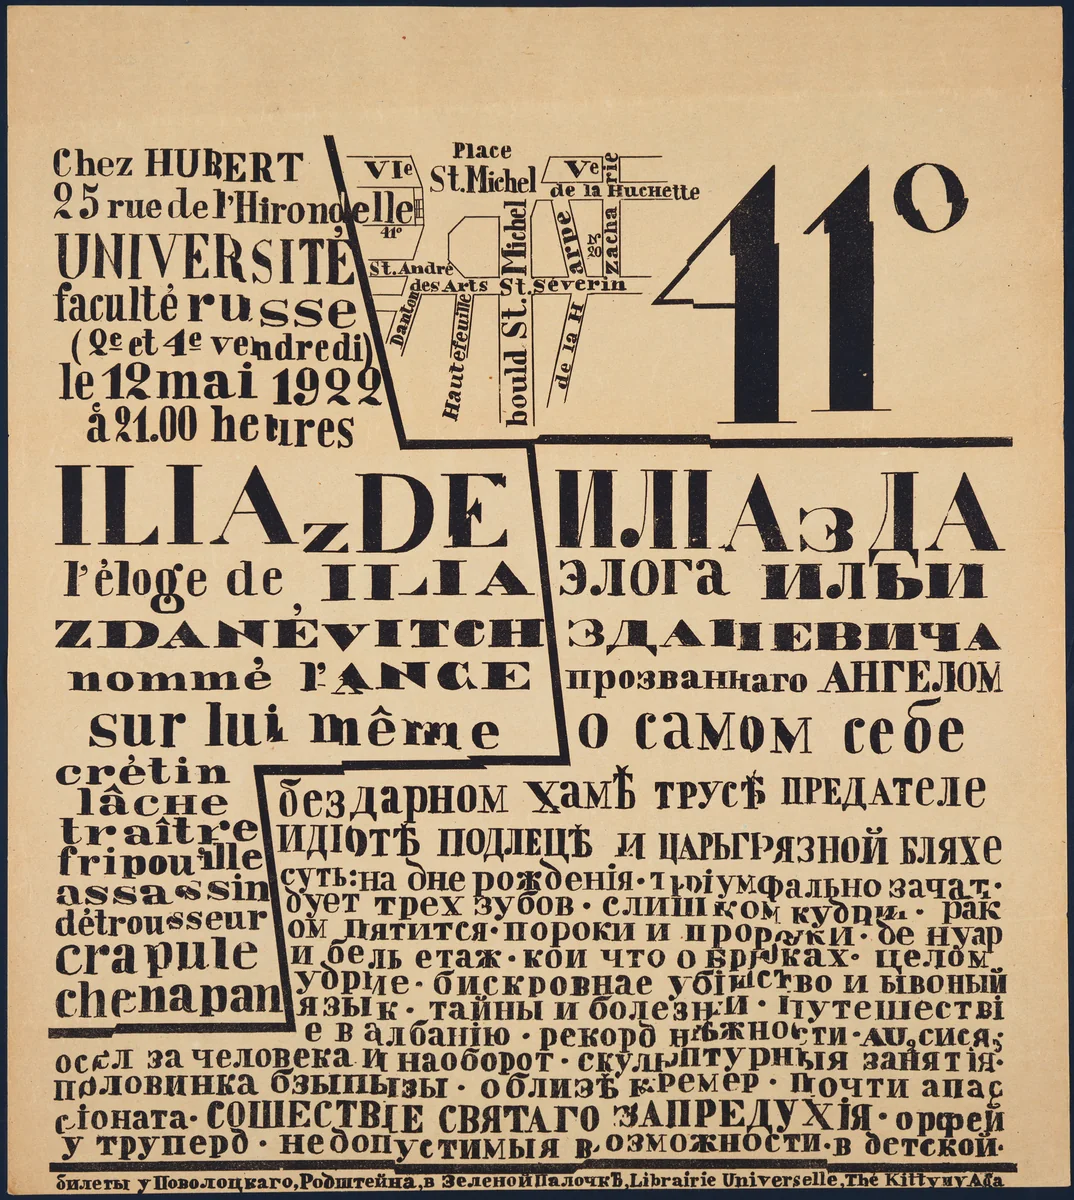 Chez HUBERT
25 rue de l'Hirondelle
UNIVERSITÉ
faculté russe
(2e et 4e vendredi)
le 12 mai 1922
à 21.00 heures
VIe
Place
St. Michel
Ve
de la Huchette
zacharie
41º
St. André
des Arts
St. Séverin
Danton
Hautefeuille
bould St. Michel
de la Harpe
No 20
41º
ILIAzDE
l'éloge de ILIA
ZDANÉVITCH
nommé l'ANGE
sur lui même
ИЛIАзДА
элога ИЛЬИ
ЗДАНЕВИЧА
прозваннаго АНГЕЛОМ
о самом себе
crétin
lâche
traître
fripouille
assassin
détrousseur
crapule
chenapan
бездарном хамѣ трусѣ предателе
идiотѣ подлецѣ и царьгрязной бляхе
суть: на дне рожденiя · трiумфально зачат ·
дует трех зубов · слишком кудри · рак
ом пятится · пороки и пророки · де нуар
и бель етаж · кои что о брюках · целом
удрие · бискровнае убiйство и ывоный
язык · тайны и болезни · путешествi
е в албанiю · рекорд нѣжности ·
осел за человека и наоборот · скульптурныя занятiя ·
половинка бзыпызы · облизѣ кремер · почти апас
сiоната · СОШЕСТВIЕ СВЯТАГО ЗАПРЕДУХIЯ · орфей
у труперд · недопустимыя возможности · в детской ·
билеты у Поволоцкаго, Родштейна, в Зеленой Палочкѣ, Librairie Universelle, The Kitty